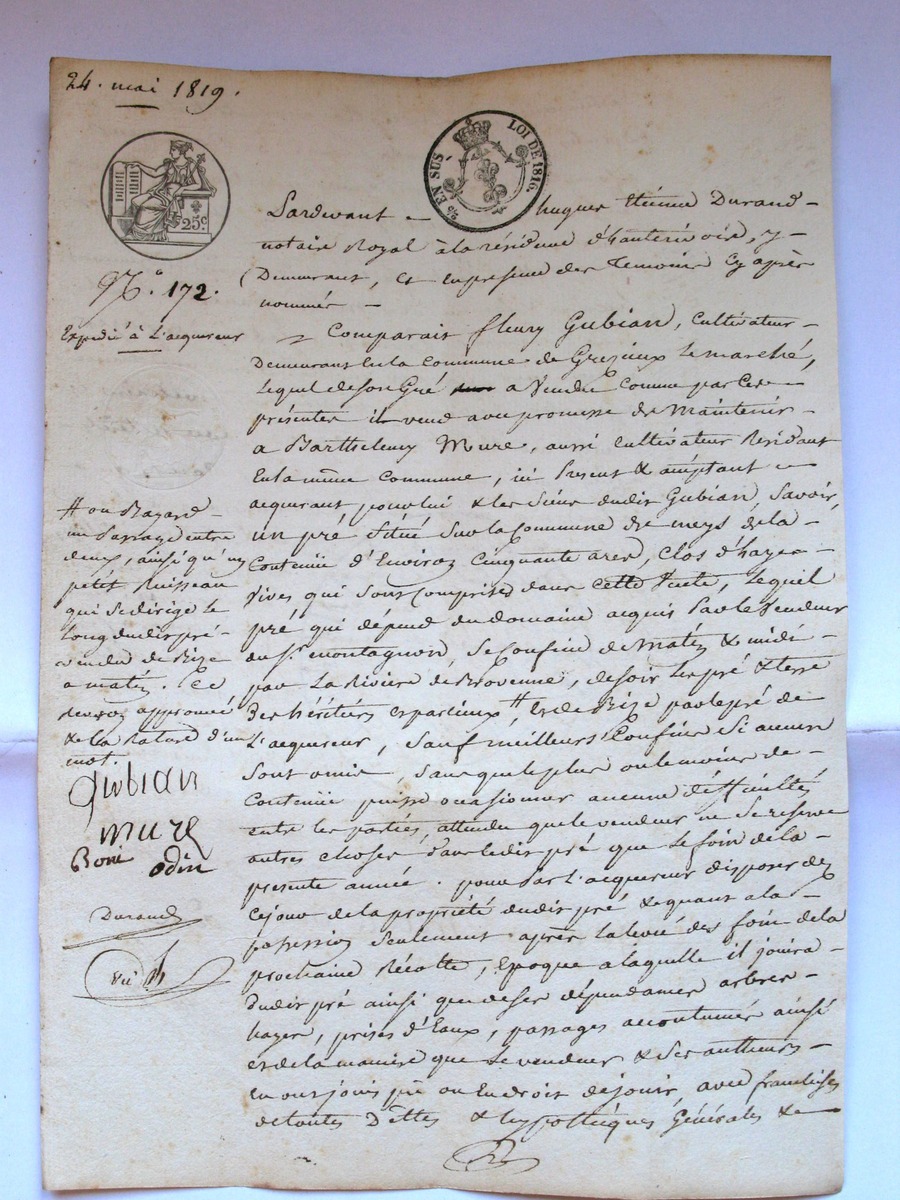 24. mai 1819.
25c
¼ EN SUS LOI DE 1816.
N.° 172.
Expedié à L'acquereur
Pardevant hugues Etienne Durand
notaire Royal à la résidence d'hauterivoire, y
Demeurant, Et en presence des Temoins Cy après
nommés
Comparait fleury Gubian, Cultivateur
Demeurant En la Commune de Grezieux Le marché,
Lequel de son Gré a Vendu Comme par Ces
présentes il vend avec promesse de Maintenir
a Barthelemy Mure, aussi Cultivateur Résidant
En la même Commune, ici Présent & acceptant
acquerant pour lui & les Siens dudit Gubian, Savoir,
un pré Situé Sur la Commune de meys de la
Contenüe d'Environ Cinquante ares, Clos d'hayes
Vives qui Sont Comprises dans cette Vente, Lequel
pré qui dépend du domaine acquis Par le Vendeur
du S.r montagnon, Se Confine de Matin & midi
par La Rivière de Brovenne, de soir Les pré & terre
des héritiers #, Et de Bize par le pré de
L'acquereur, Sauf meilleurs Confins Si aucun
Sont omis, Sans que le plus ou le moins de
Contenüe puisse occasionner aucune difficultés
entre les parties, attendu que le vendeur ne Se reserve
autres choses dans ledit pré que le foin de la
presente année. pourra L'acquereur disposer dez
Ce jour de la propriété dudit pré & quant a la
possession Seulement après la levée des foin de la
prochaine Récolte, Epoque a laquelle il jouira
Dudit pré ainsi que de ses dépendances arbres
hayes, prises d'Eaux, passages accoutumés ainsi
et de la maniere que Le vendeur & Ses autheurs
en ont joui où ou En droit de jouir, avec franchises
de toutes Dettes & hypothèques Générales &
# ou Razard
un Passage entre
deux, ainsi qu'un
petit Ruisseau
qui Se dirige Le
long dudit pré
vendu de Bize
a matin. Ce
Renvoy approuvé
& la Rature d'un
mot.
Gubian
mure
Boni odin
Durand
Vu